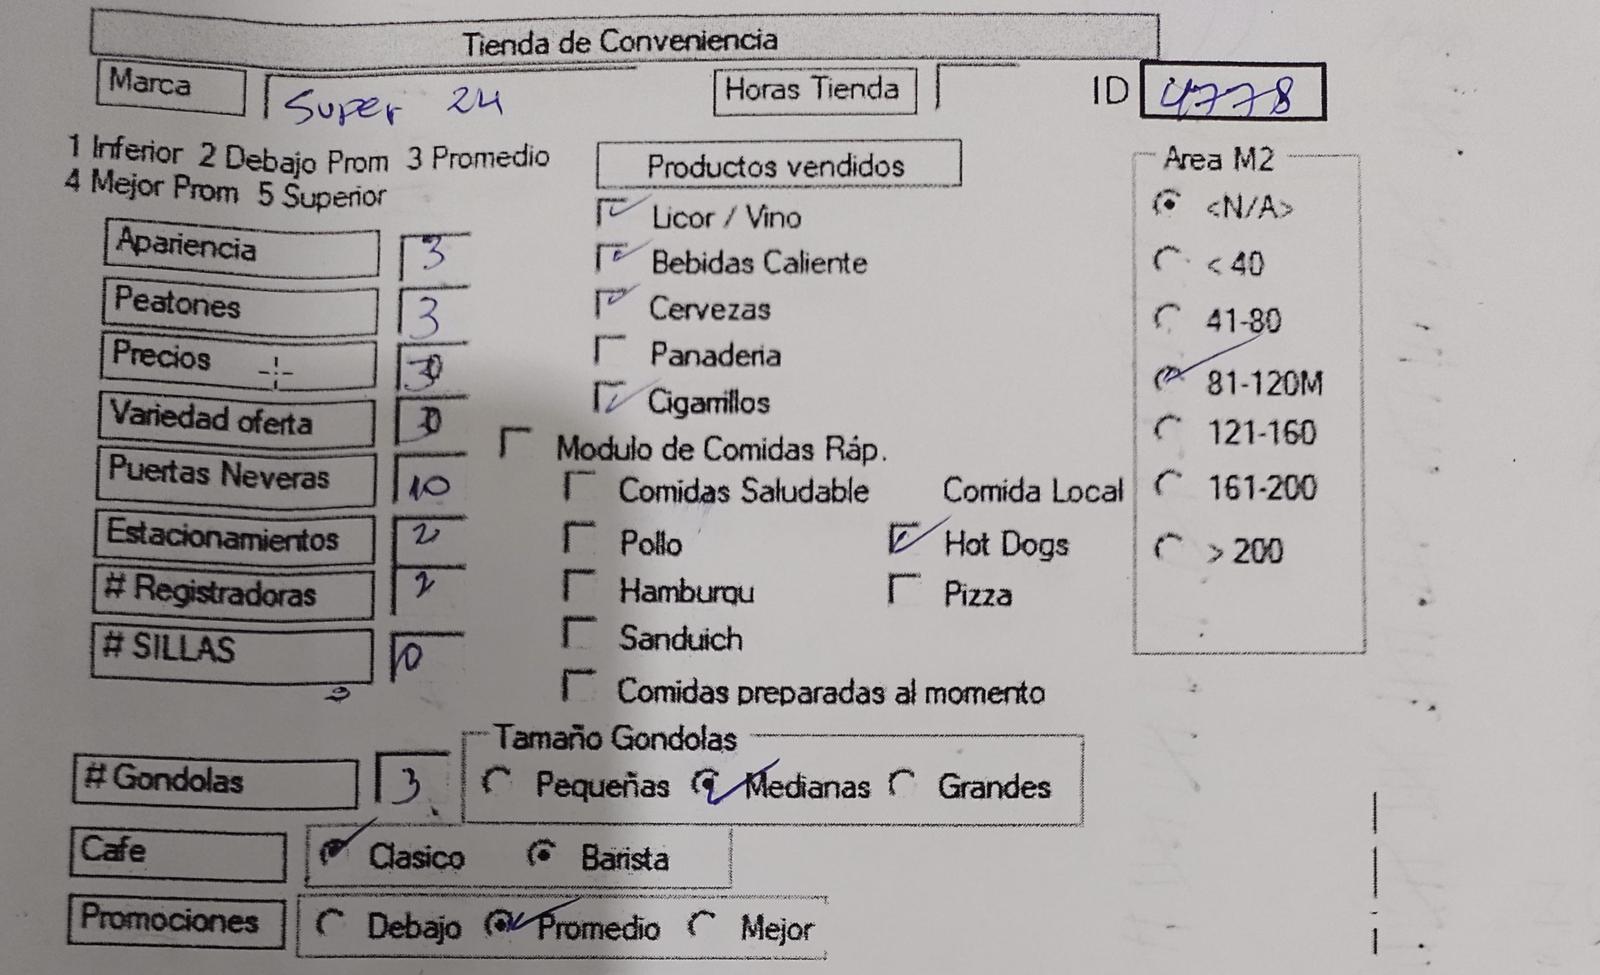 Tienda de Conveniencia
Marca Super 24 Horas Tienda ID 4778
1 Inferior 2 Debajo Prom 3 Promedio
4 Mejor Prom 5 Superior
Productos vendidos
Area M2
Licor / Vino
<N/A>
Apariencia 3
Bebidas Caliente
< 40
Peatones 3
Cervezas
41-80
Precios 3
Panaderia
81-120M
Variedad oferta 3
Cigarrillos
121-160
Modulo de Comidas Ráp.
Puertas Neveras 10
Comidas Saludable Comida Local
161-200
Estacionamientos 2
Pollo Hot Dogs
> 200
# Registradoras 2
Hamburqu Pizza
# SILLAS 0
Sanduich
Comidas preparadas al momento
Tamaño Gondolas
# Gondolas 3 Pequeñas Medianas Grandes
Cafe Clasico Barista
Promociones Debajo Promedio Mejor